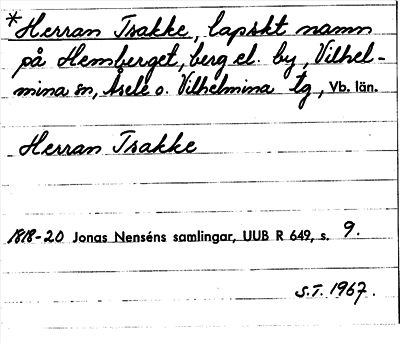 *Herran Tsakke, lapskt namn
på Hemberget, berg el. by, Vilhel-
mina sn, Åsele o. Vilhelmina tg, Vb. län.
Herran Tsakke
1818-20 Jonas Nenséns samlingar, UUB R 649, s. 9.
S.T. 1967.